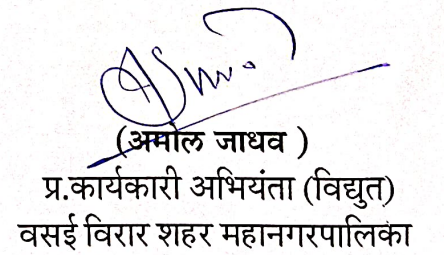 (अमोल जाधव )
प्र.कार्यकारी अभियंता (विद्युत)
वसई विरार शहर महानगरपालिका